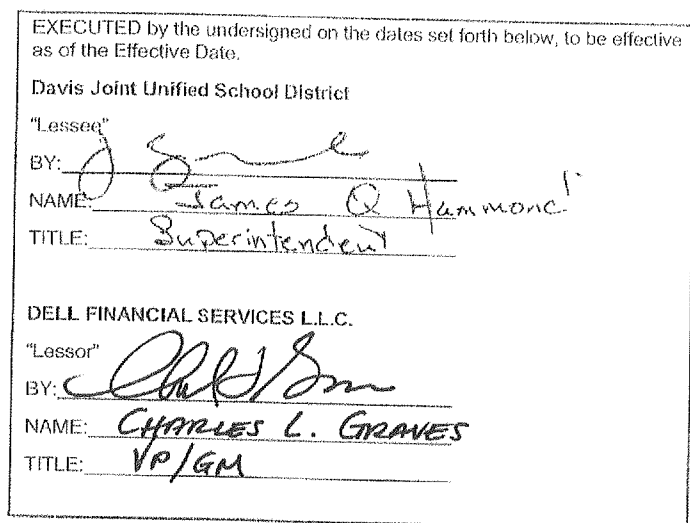 EXECUTED by the undersigned on the dates set forth below, to be effective
as of the Effective Date.
Davis Joint Unified School District
"Lessee"
BY:
NAME: James Q Hammond
TITLE: Superintendent
DELL FINANCIAL SERVICES L.L.C.
"Lessor"
BY:
NAME: CHARLES L. GRAVES
TITLE: VP/GM